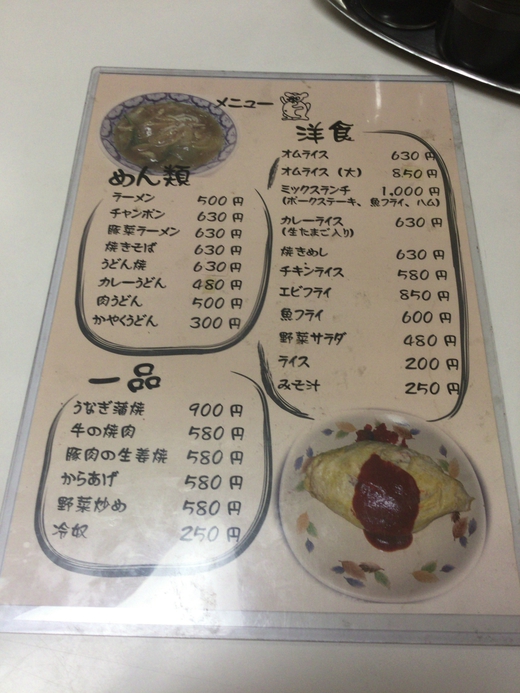 メニュー
めん類
ラーメン 500円
チャンポン 630円
豚菜ラーメン 630円
焼きそば 630円
うどん焼 630円
カレーうどん 480円
肉うどん 500円
かやくうどん 300円
一品
うなぎ蒲焼 900円
牛の焼肉 580円
豚肉の生姜焼 580円
からあげ 580円
野菜炒め 580円
冷奴 250円
洋食
オムライス 630円
オムライス (大) 850円
ミックスランチ 1,000円
(ポークステーキ、魚フライ、ハム)
カレーライス 630円
(生たまご入り)
焼きめし 630円
チキンライス 580円
エビフライ 850円
魚フライ 600円
野菜サラダ 480円
ライス 200円
みそ汁 250円